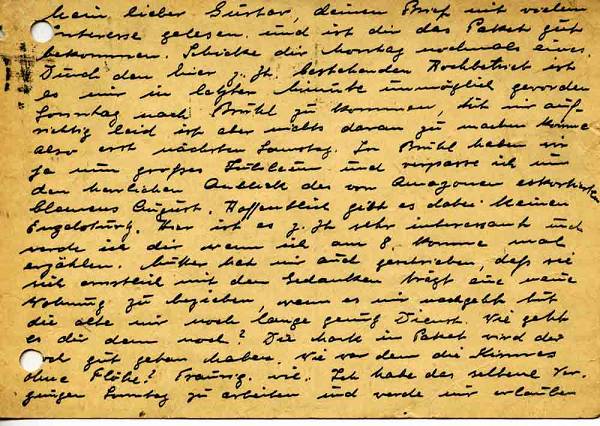 Mein lieber Gustav, deinen Brief mit vielem
Interesse gelesen und ist dir das Paket gut
bekommen. Schicke dir Montag nochmals eines.
Durch den hier z. Zt. bestehenden Hochbetrieb ist
es mir in letzter Minute unmöglich geworden
Sonntag nach Brühl zu kommen, tut mir auf-
richtig leid ist aber nichts daran zu machen komme
also erst nächsten Samstag. In Brühl haben wir
ja nun großes Jubiläum und verpasse ich nun
den herrlichen Anblick des von Amazonen eskortierten
Clemens August. Hoffentlich gibt es dabei keinen
Engelsturz. Hier ist es z. Zt sehr interessant und
werde ich dir wenn ich am 8. komme mal
erzählen. Mutter hat mir auch geschrieben, daß sie
sich ernstlich mit dem Gedanken trägt eine neue
Wohnung zu beziehen, wenn es mir nachgeht tut
die alte mir noch lange genug Dienst. Wie geht
es dir denn noch? Die Mark im Paket wird dir
doch gut getan haben. Wie war denn die Kirmes
ohne Flöhe? Traurig, wie. Ich habe das seltene Ver-
gnügen Sonntag zu arbeiten und werde mir erlauben